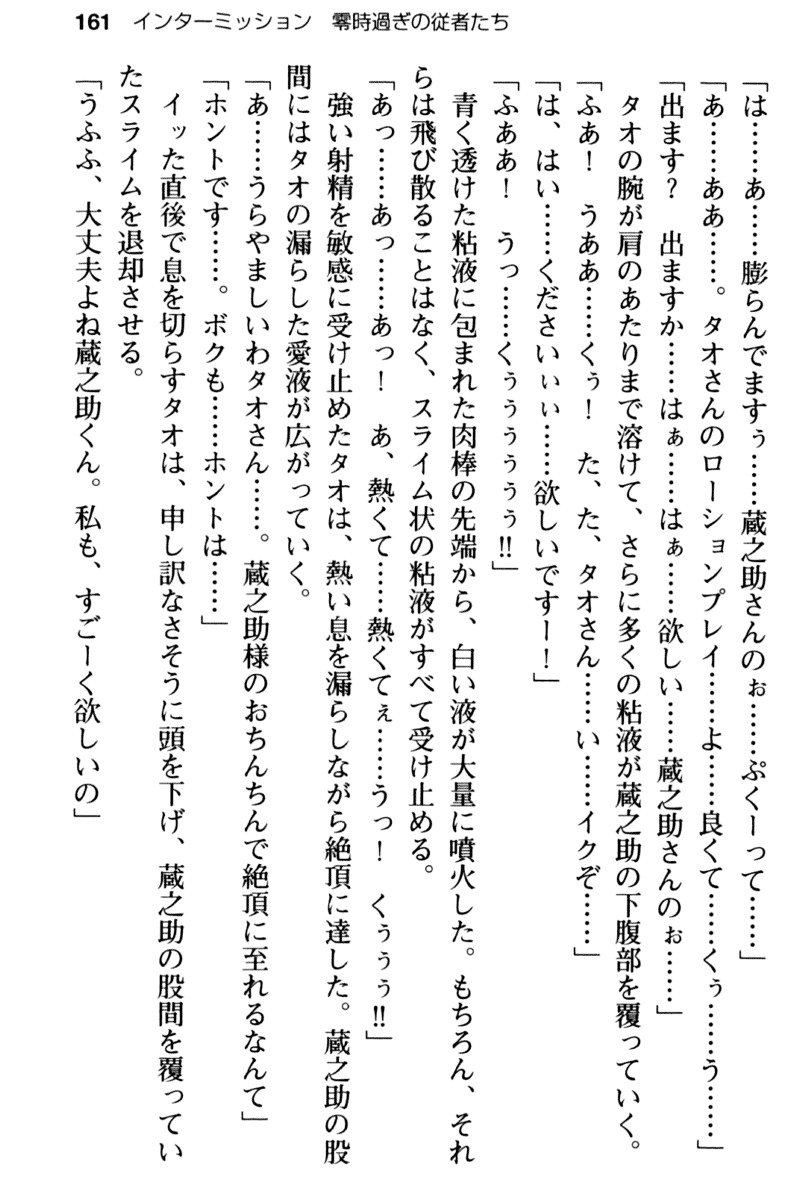 161 インターミッション 零時過ぎの従者たち
「は……あ……膨らんでますぅ……蔵之助さんのぉ……ぷくーって……」
「あ……ああ……。タオさんのローションプレイ……よ……良くて……くぅ……う……」
「出ます？ 出ますか……はぁ……はぁ……欲しい……蔵之助さんのぉ……」
タオの腕が肩のあたりまで溶けて、さらに多くの粘液が蔵之助の下腹部を覆っていく。
「ふぁ！ うああ……くぅ！ た、た、タオさん……い……イクぞ……」
「は、はい……くださいぃぃ……欲しいですー！」
「ふぁあ！ うっ……くぅぅぅぅぅ!!」
青く透けた粘液に包まれた肉棒の先端から、白い液が大量に噴火した。もちろん、それ
らは飛び散ることはなく、スライム状の粘液がすべて受け止める。
「あっ……あっ……あっ！ あ、熱くて……熱くてぇ……うっ！ くぅぅぅ!!」
強い射精を敏感に受け止めたタオは、熱い息を漏らしながら絶頂に達した。蔵之助の股
間にはタオの漏らした愛液が広がっていく。
「あ……うらやましいわタオさん……。蔵之助様のおちんちんで絶頂に至れるなんて」
「ホントです……。ボクも……ホントは……」
イッた直後で息を切らすタオは、申し訳なさそうに頭を下げ、蔵之助の股間を覆ってい
たスライムを退却させる。
「うふふ、大丈夫よね蔵之助くん。私も、すごーく欲しいの」